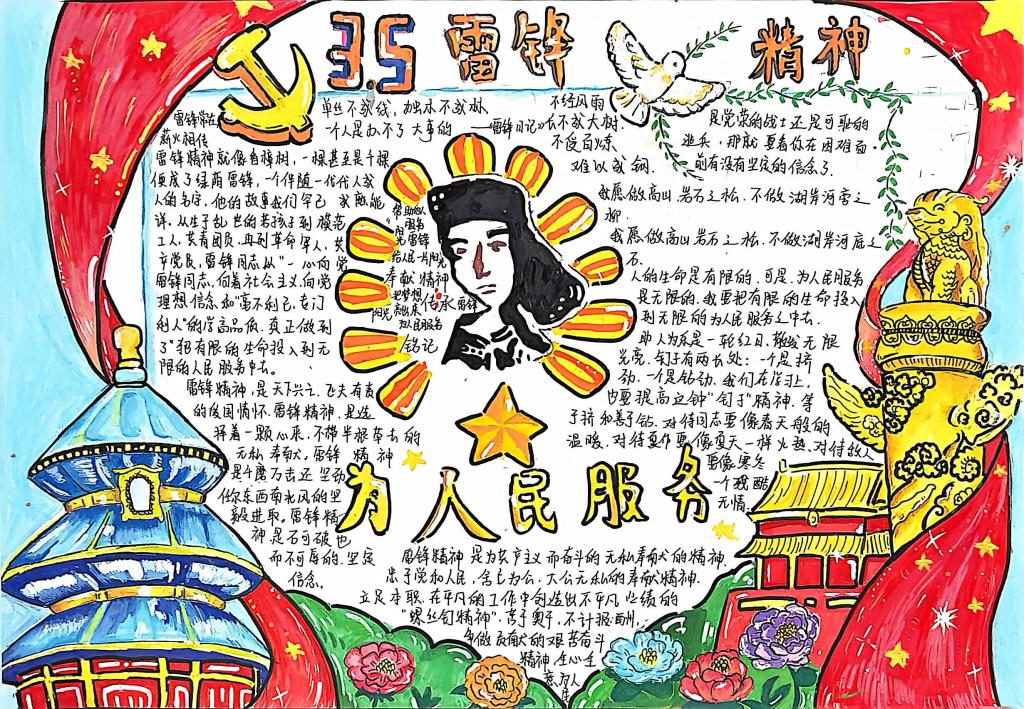 3.5 雷锋 精神
雷锋常在
薪火相传
雷锋精神就像香樟树，一棵甚至是千棵
便成了绿荫雷锋，一个伴随一代代人成
人的名字，他的故事我们早已
详，从生于乱世的苦孩子到模范
工人，共青团员，再到革命军人，共
产党员，雷锋同志以"一心向党
雷锋同志，向着社会主义，向党
理想信念和"毫不利己，专门
利人"的崇高品质，真正做到
了"把有限的生命投入到无
限的人民服务中去。
雷锋精神，是天下兴亡，匹夫有责
的爱国情怀，雷锋精神，是
着一颗心来，不带半根草去的
无私奉献，雷锋精神
是千磨万击还坚劲
任尔东西南北风的坚
毅进取，雷锋精
神，是石可破也
而不可辱的，坚定
信念。
单丝不成线，独木不成林
一个人是办不了大事的——《雷锋日记》
不经风雨
长不成大树，
不受百炼
难以成钢
是光荣的战士还是可耻的
逃兵，那就要看你在困难面
前有没有坚定的信念了
我愿做高山岩石之松，不做湖岸河旁之
柳
我愿做高山岩石之松，不做湖岸河底之
石
人的生命是有限的，可是，为人民服务
是无限的，我要把有限的生命投入
到无限的为人民服务之中去，
助人为乐是一轮红日，散发无限
光亮，钉子有两长处：一个是挤
劲，一个是钻劲，我们在学习上
也要提高这种"钉子"精神，等
于挤和善于钻，对待同志要像春天般的
温暖，对待工作要像夏天一样火热，对待敌人
要像寒冬
一个残酷
无情
帮助他人
服务
阳光雷锋
给人民一片阳光
奉献精神
把梦想
传承
雷锋
阳光
为人民服务
铭记
为人民服务
雷锋精神是为共产主义而奋斗的无私奉献的精神，
忠于党和人民，舍己为公，大公无私的奉献精神，
立足本职，在平凡的工作中创造出不平凡业绩的
"螺丝钉精神"，苦干实干，不计报酬，
争做贡献的艰苦奋斗
精神，全心全
意为人
民